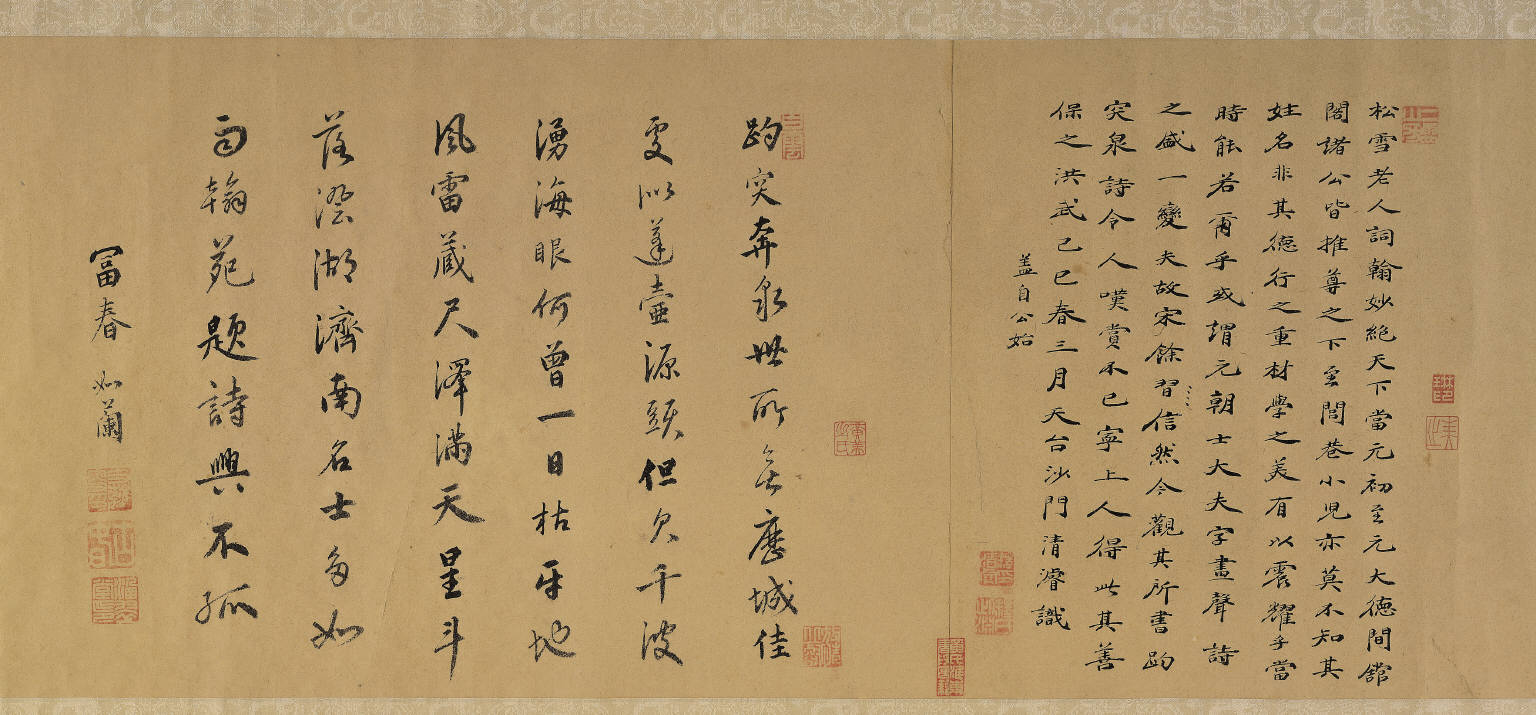 松雪老人詞翰妙絶天下當元初至元大德間舘
閣諸公皆推尊之下至閭巷小児亦莫不知其
姓名非其德行之重材學之美有以震耀乎當
時能若爾乎或謂元朝士大夫字畫聲詩
之盛一變夫故宋餘習信然今觀其所書趵
突泉詩令人嘆賞不已寧上人得此其善
保之洪武己巳春三月天台沙門清濬識
蓋自公始
趵突奔泉世所無歷城佳
處似蓬壺源頭但欠千波
湧海眼何曾一日枯平地
風雷藏尺澤滿天星斗
落澄湖濟南名士多如
雨翰苑題詩興不孤
冨春 如蘭